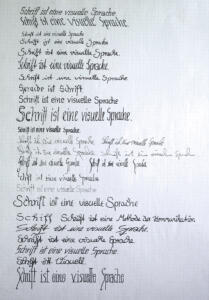 Schrift ist eine visuelle Sprache
Schrift ist eine visuelle Sprache.
Schrift ist eine visuelle Sprache
Schrift ist eine visuelle Sprache
Schrift ist eine visuelle Sprache.
Schrift ist eine visuelle Sprache.
Schrift ist eine visuelle Sprache.
Sprache ist Schrift
Schrift ist eine visuelle Sprache
Schrift ist eine visuelle Sprache.
Schrift ist eine visuelle Sprache.
Schrift ist eine visuelle Sprache Schrift ist eine visuelle Sprache
Schrift ist eine visuelle Sprache Schrift ist eine visuelle Sprache
Schrift ist eine visuelle Sprache Schrift ist eine visuelle Sprache
Schrift ist eine visuelle Sprache
Schrift ist eine visuelle Sprache
Schrift ist eine visuelle Sprache
Schrift Schrift ist eine Methode der Kommunikation.
Schrift ist eine visuelle Sprache.
Schrift ist eine visuelle Sprache.
Schrift ist eine visuelle Sprache
Schrift ist visuell.
Schrift ist eine visuelle Sprache